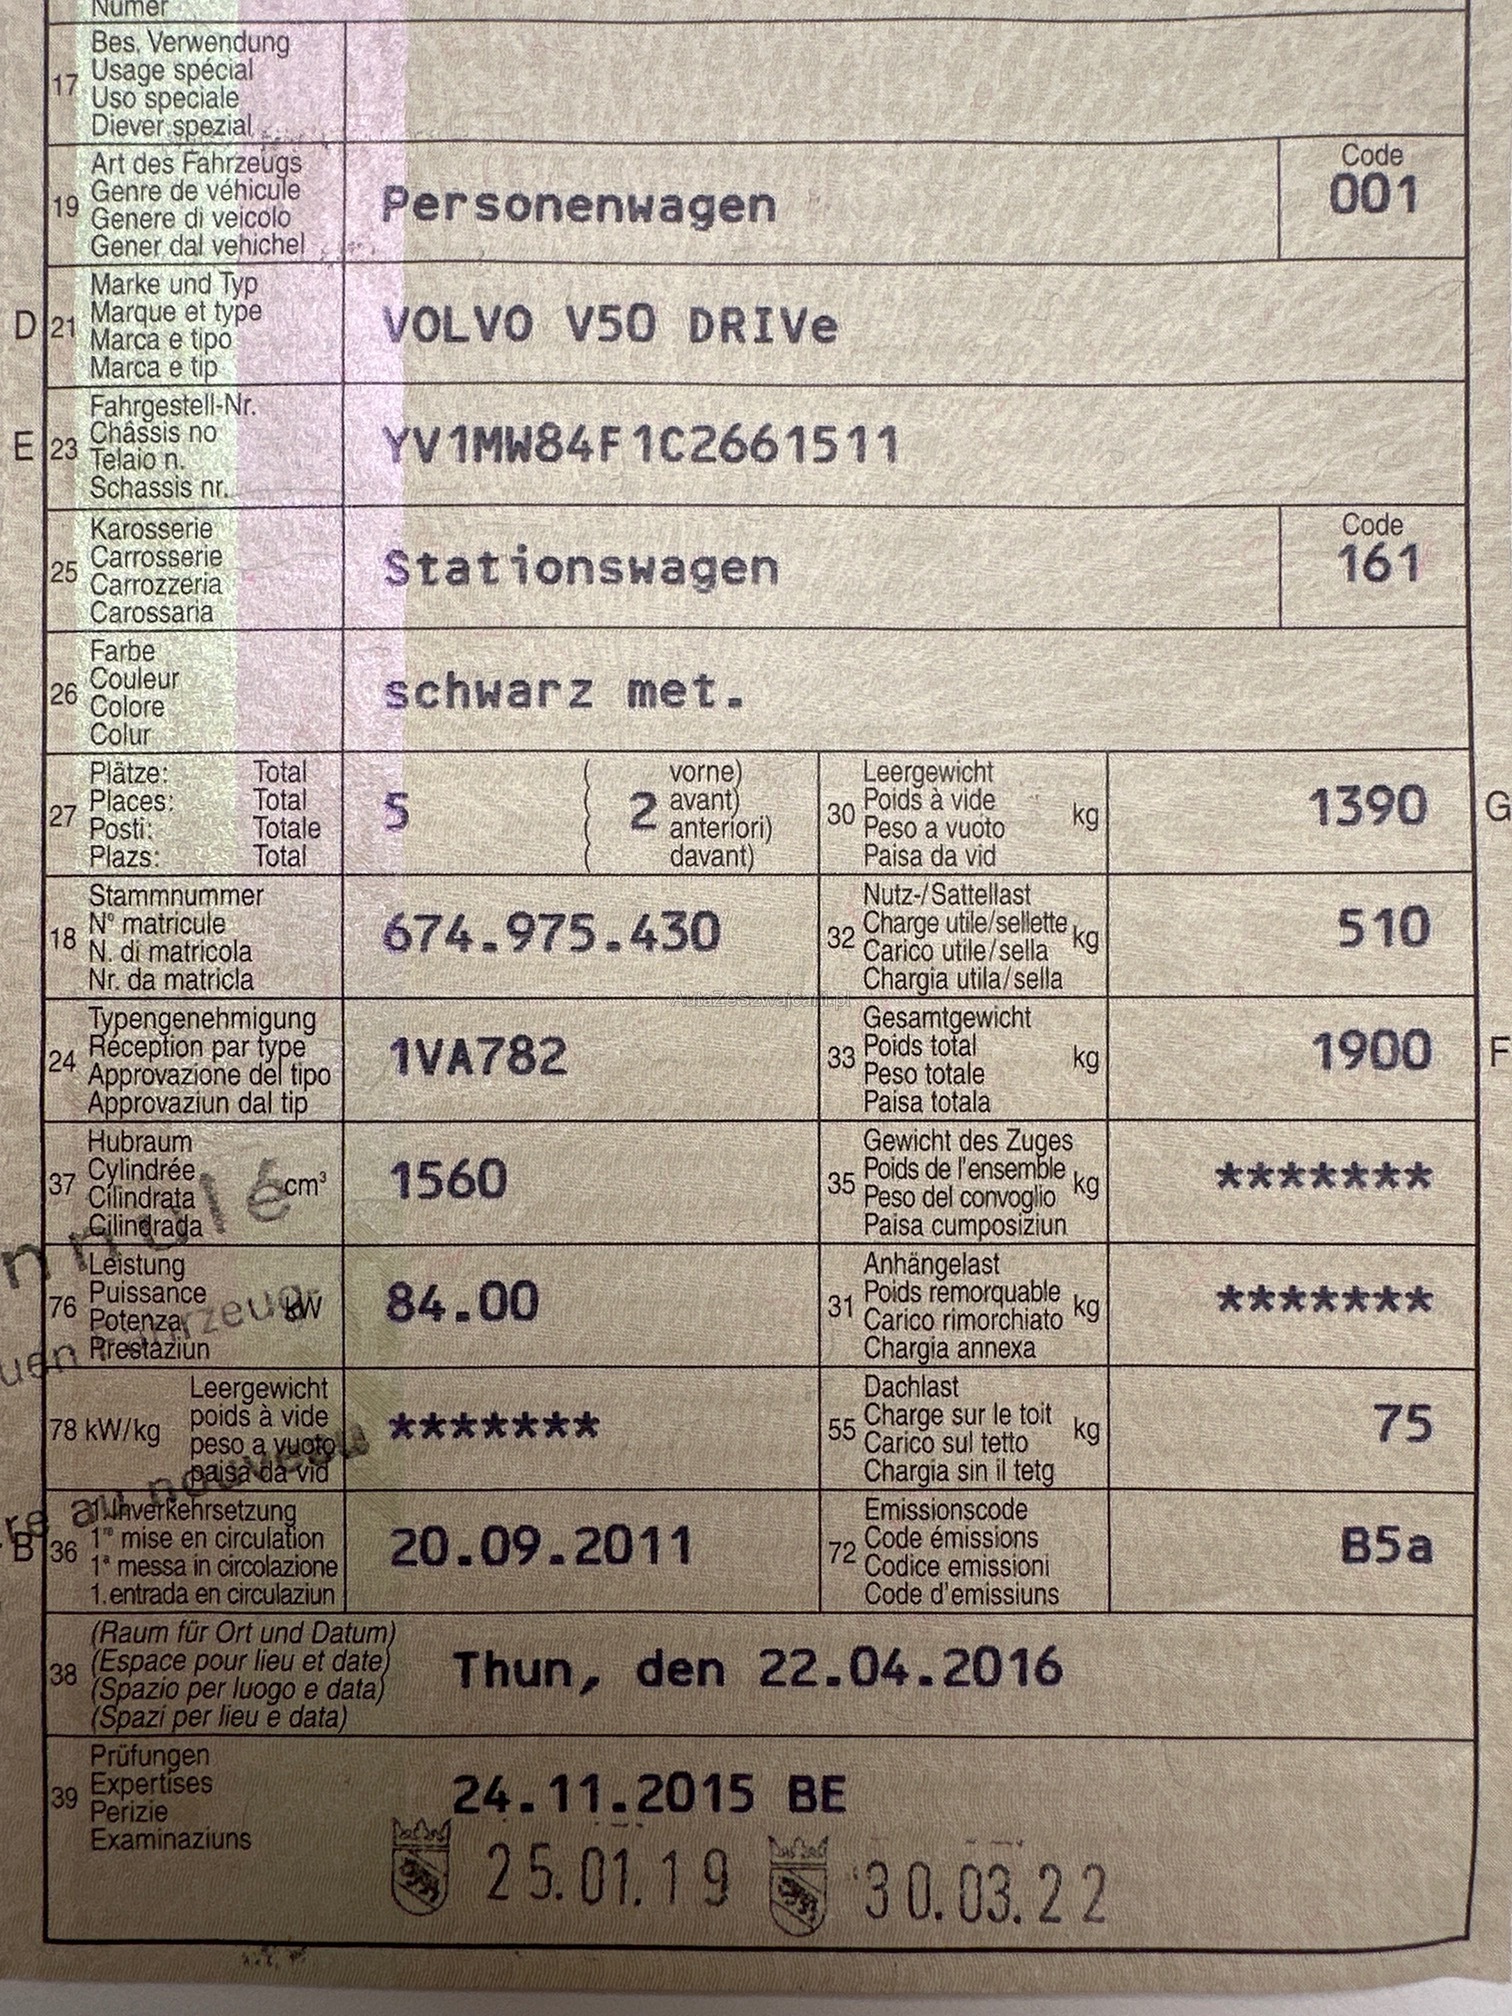 Numer
17 Bes. Verwendung
Usage spécial
Uso speciale
Diever spezial
19 Art des Fahrzeugs
Genre de véhicule
Genere di veicolo
Gener dal vehichel
Personenwagen
Code
001
D 21 Marke und Typ
Marque et type
Marca e tipo
Marca e tip
VOLVO V50 DRIVe
E 23 Fahrgestell-Nr.
Châssis no
Telaio n.
Schassis nr.
YV1MW84F1C2661511
25 Karosserie
Carrosserie
Carrozzeria
Carossaria
Stationswagen
Code
161
26 Farbe
Couleur
Colore
Colur
schwarz met.
27 Plätze: Total
Places: Total
Posti: Totale
Plazs: Total
5
( vorne)
( 2 avant)
( anteriori)
( davant)
30 Leergewicht
Poids à vide
Peso a vuoto
Paisa da vid
kg
1390
G
18 Stammnummer
N° matricule
N. di matricola
Nr. da matricla
674.975.430
32 Nutz-/Sattellast
Charge utile/sellette
Carico utile/sella
Chargia utila/sella
kg
510
AutaZeSzwajcarii.pl
24 Typengenehmigung
Réception par type
Approvazione del tipo
Approvaziun dal tip
1VA782
33 Gesamtgewicht
Poids total
Peso totale
Paisa totala
kg
1900
F
37 Hubraum
Cylindrée
Cilindrata
Cilindrada
cm³
1560
35 Gewicht des Zuges
Poids de l'ensemble
Peso del convoglio
Paisa cumposiziun
kg
*******
76 Leistung
Puissance
Potenza
Prestaziun
kW
84.00
31 Anhängelast
Poids remorquable
Carico rimorchiato
Chargia annexa
kg
*******
78 kW/kg
Leergewicht
poids à vide
peso a vuoto
paisa da vid
*******
55 Dachlast
Charge sur le toit
Carico sul tetto
Chargia sin il tetg
kg
75
au nouveau
B 36 1. Inverkehrsetzung
1re mise en circulation
1a messa in circolazione
1. entrada en circulaziun
20.09.2011
72 Emissionscode
Code émissions
Codice emissioni
Code d'emissiuns
B5a
38 (Raum für Ort und Datum)
(Espace pour lieu et date)
(Spazio per luogo e data)
(Spazi per lieu e data)
Thun, den 22.04.2016
39 Prüfungen
Expertises
Perizie
Examinaziuns
24.11.2015 BE
25.01.19 30.03.22